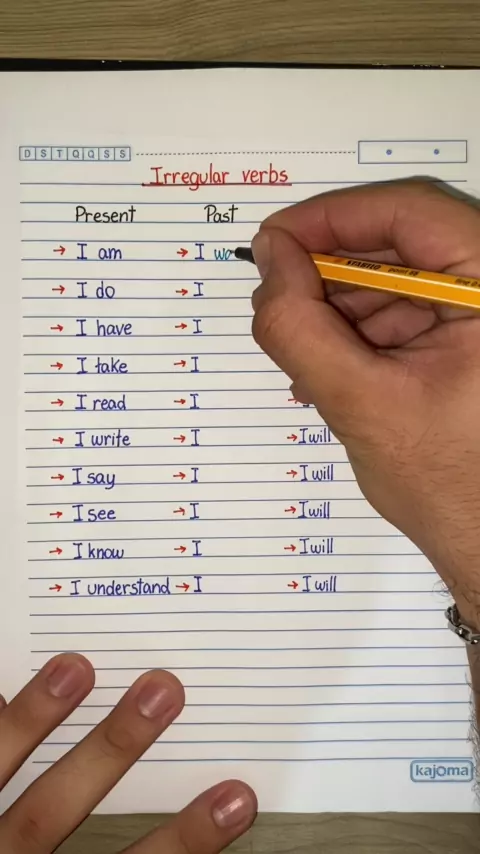 D S T Q Q S S
Irregular verbs
Present Past
→ I am → I wa
→ I do → I
→ I have → I
→ I take → I
→ I read → I
→ I write → I → I will
→ I say → I → I will
→ I see → I → I will
→ I know → I → I will
→ I understand → I → I will
kajoma